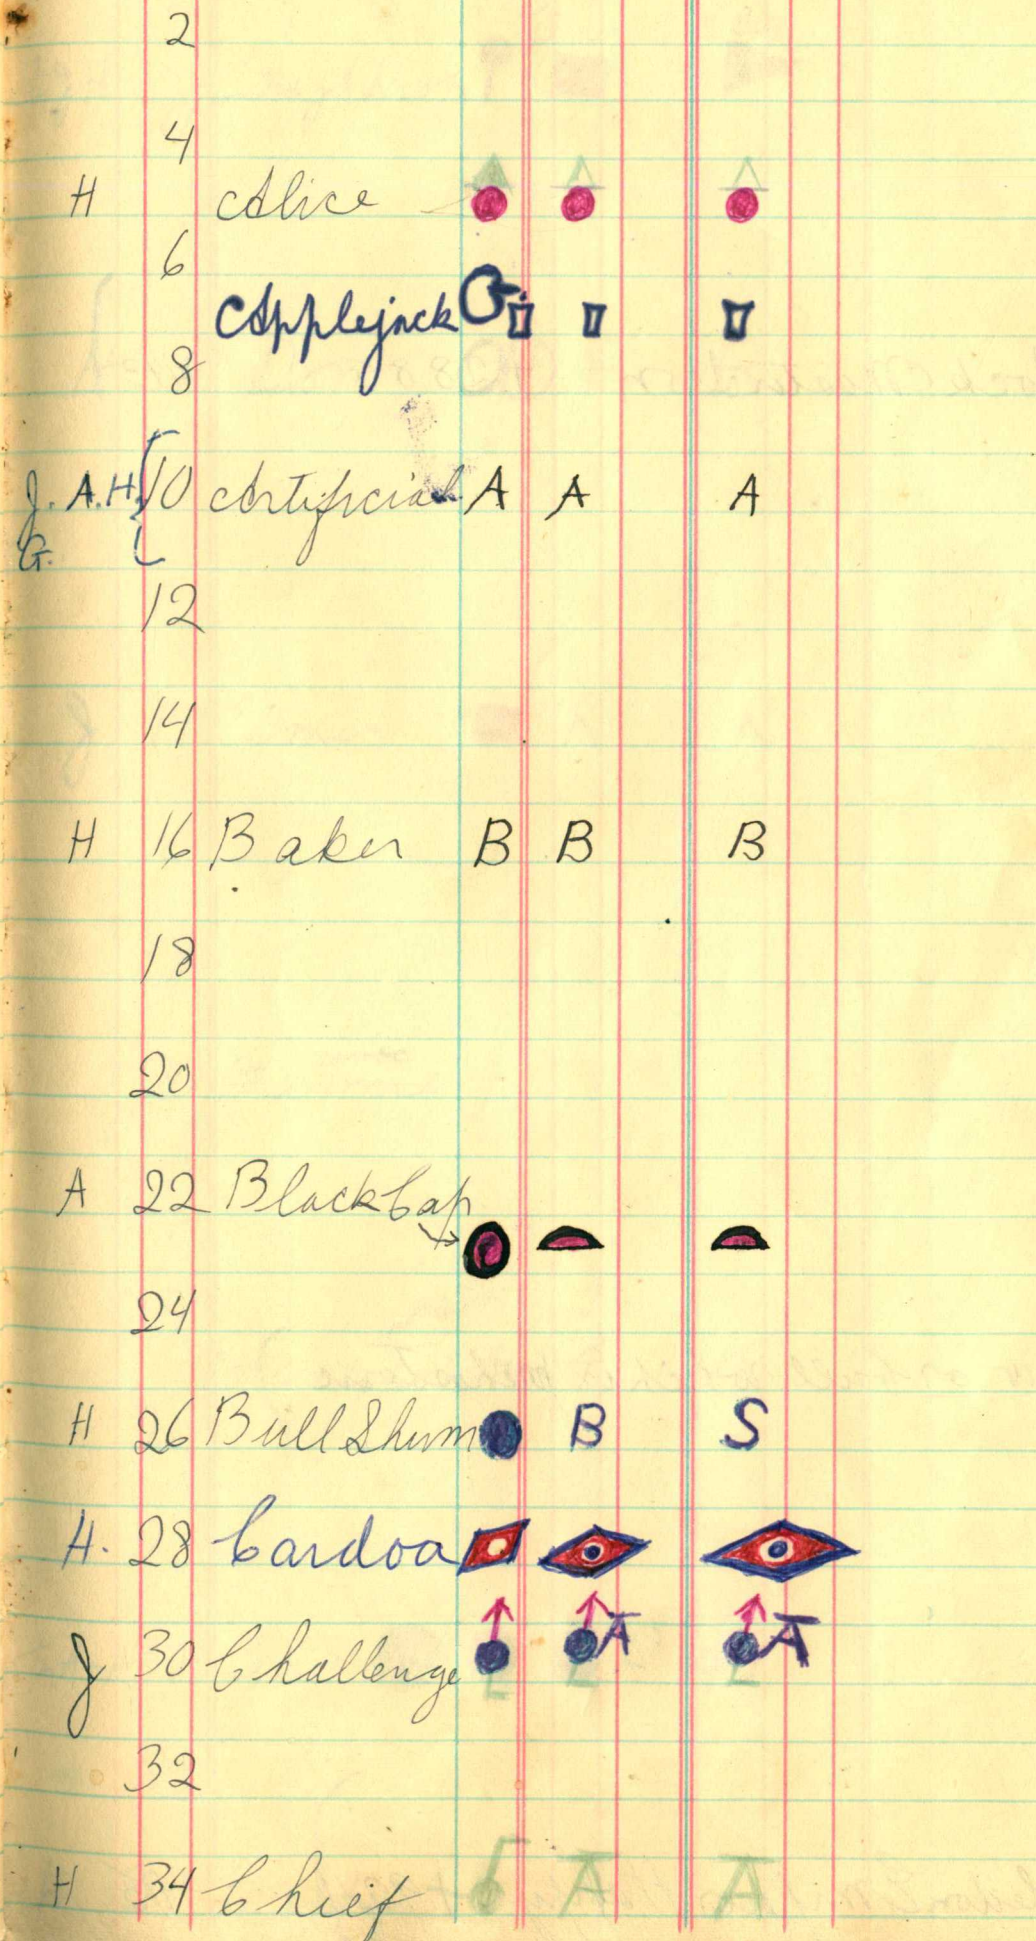 2
4
H Alice
6
Applejack
8
J. A. H. 10 Artificial A A A
G.
12
14
H 16 Baker B B B
18
20
A 22 Black Cap
24
H 26 Bull Shum B S
H. 28 Cardoa
A A
J 30 Challenge
32
H 34 Chief A A